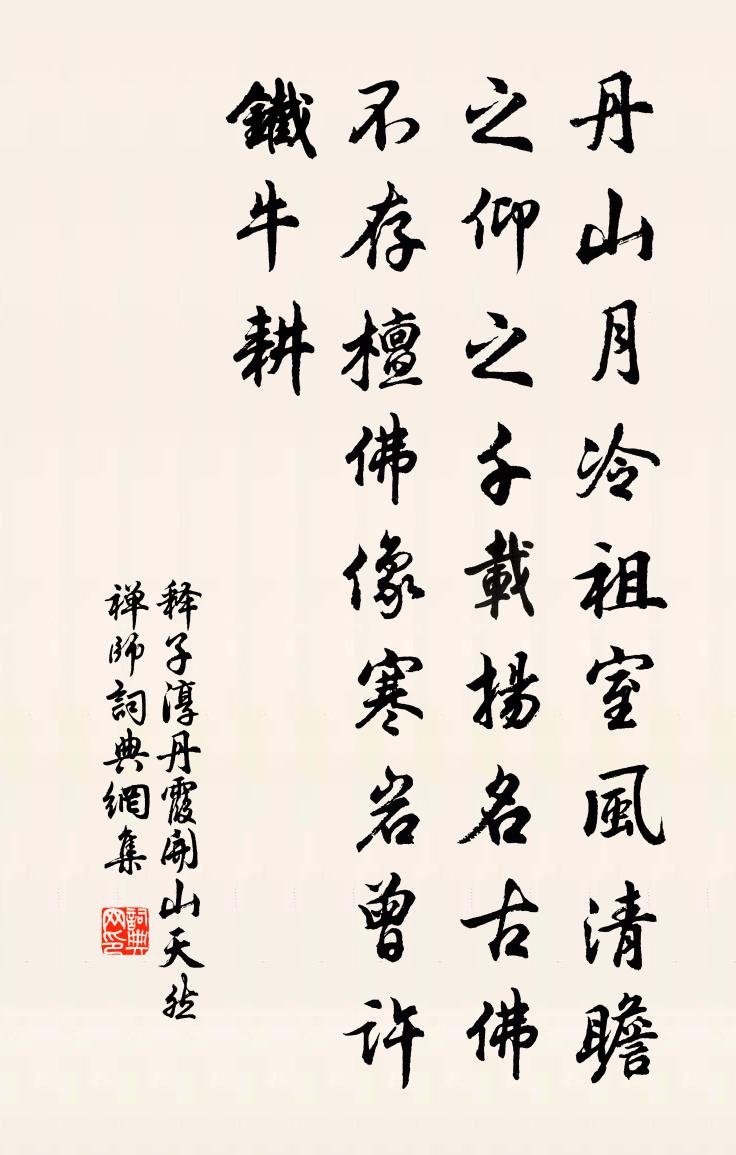 丹山月冷祖室風清瞻
之仰之千載揚名古佛
不存檀佛像寒岩曾許
鐵牛耕
释子淳丹霞開山天然
禅師詞典網集
詞典
网印